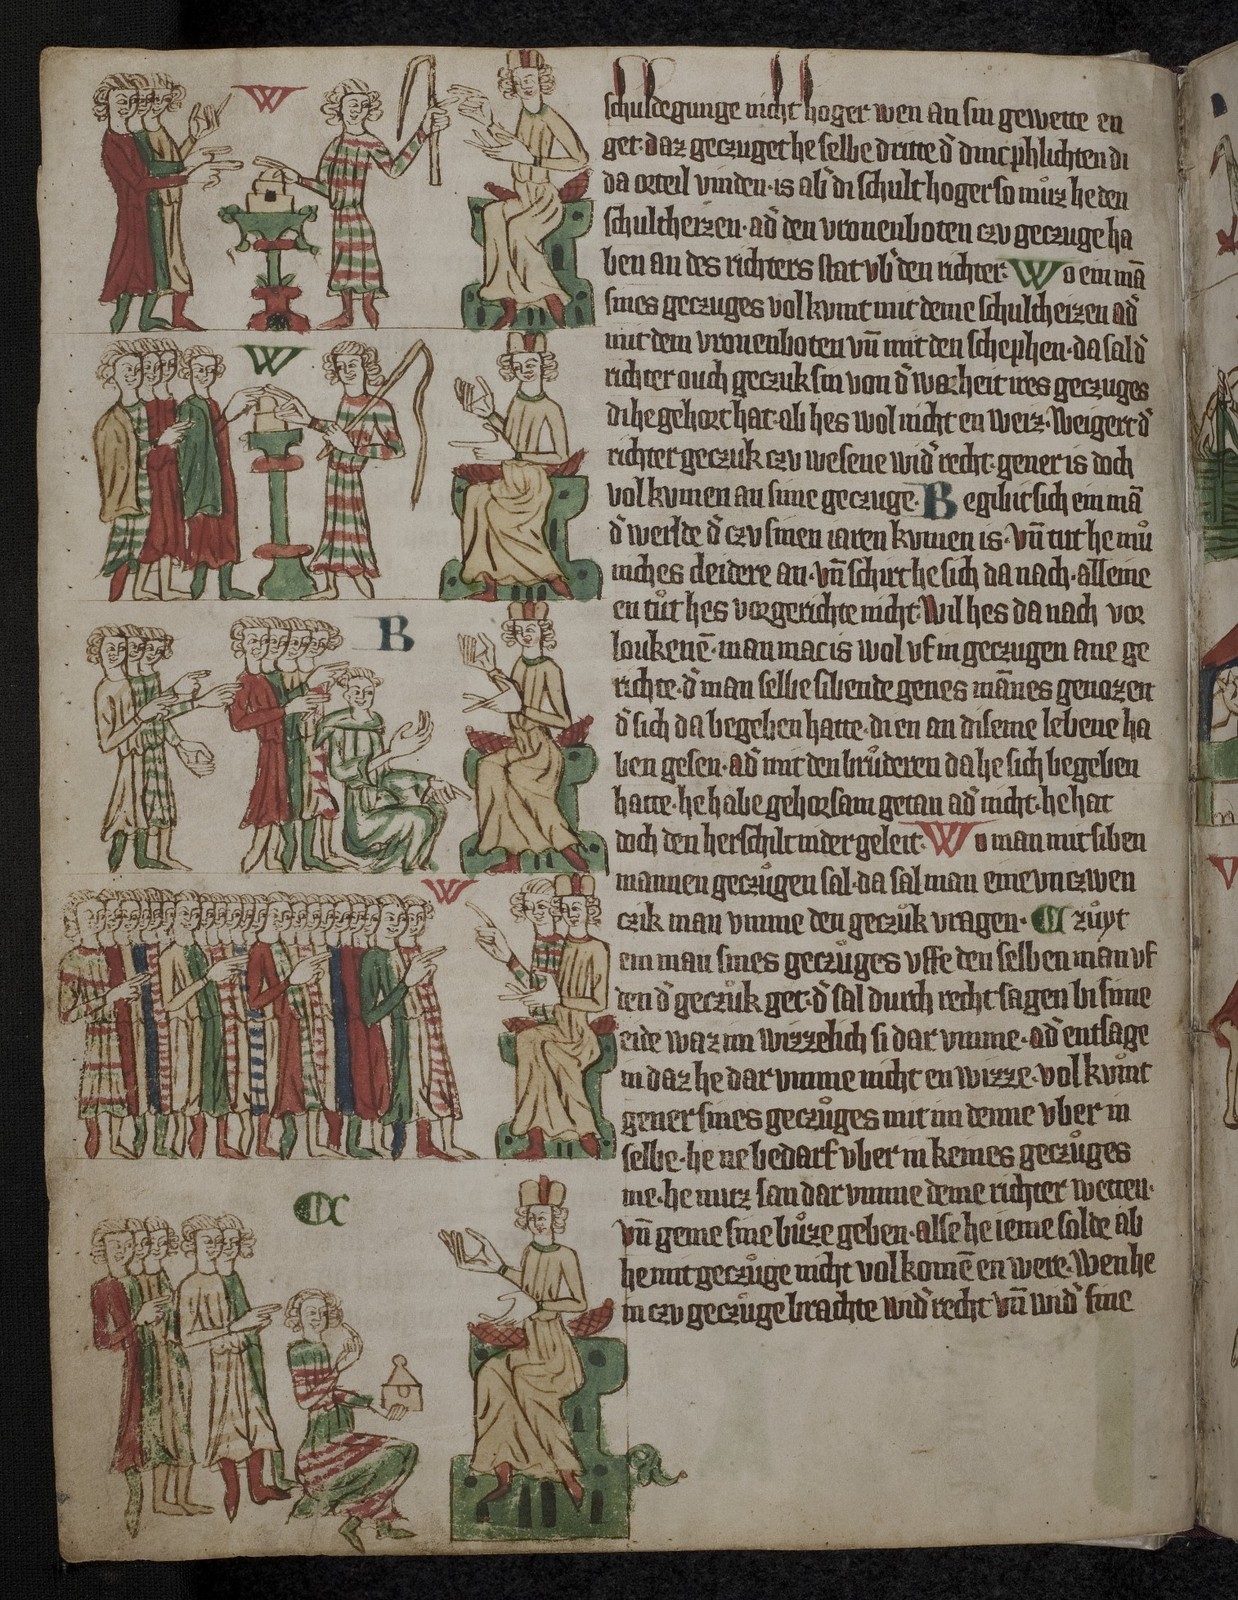 W
W
B
W
E
schuldegunge nicht hoger wen an sin gewette en
get· daz geczuget he selbe dritte d̉ dinc phlichten di
da orteil vinden· is ab̉ di schult hoger so můz he den
schultheizen· ad̉ den vronenboten czv geczuge ha
ben an des richters stat vb̉ den richter· Wo ein mā
sines geczuges vol kvmt mit deme schultheizen ad̉
mit dem vronenboten vn̄ mit den schephen· da sal d̉
richter ouch geczuk sin von d̉ warheit ires geczuges
di he gehort hat· ab hes wol nicht en weiz· Weigert d̉
richter geczuk czv wesene wid̉ recht· gener is doch
vol kvmen an sime geczuge· Begibit sich ein mā
d̉ werlde d̉ czv sinen iaren kvmen is· vn̄ tut he mů
niches cleidere an· vn̄ schirt he sich da nach· alleine
en tůt hes vor gerichte nicht· Wil hes da nach vor
loukenē· man mac is wol vf in geczugen ane ge
richte· d̉ man selbe sibende genes mānes genozen
d̉ sich da begeben hatte· di en an diseme lebene ha
ben gesen· ad̉ mit den brůderen da he sich begeben
hatte· he habe gehorsam getan ad̉ nicht· he hat
doch den herschilt nider geleit· Wo man mit siben
mannen geczůgen sal· da sal man eine vn czwen
czik man vmme den geczůk vragen· Czůyt
ein man sines geczůges vffe den selben man vf
den d̉ geczůk get· d̉ sal durch recht sagen bi sime
eide waz im wizzelich si dar vmme· ad̉ entsage
in daz he dar vmme nicht en wizze· vol kvmt
gener sines geczůges mit im denne vber in
selbe· he ne bedarf vber in keines geczůges
me· he muz san dar vmme deme richter wetten·
vn̄ geme sine bůze geben· alse he ieme solde ab
he mit geczůge nicht vol komē en were· Wen he
in czv geczůge brachte wid̉ recht vn̄ wid̉ sine